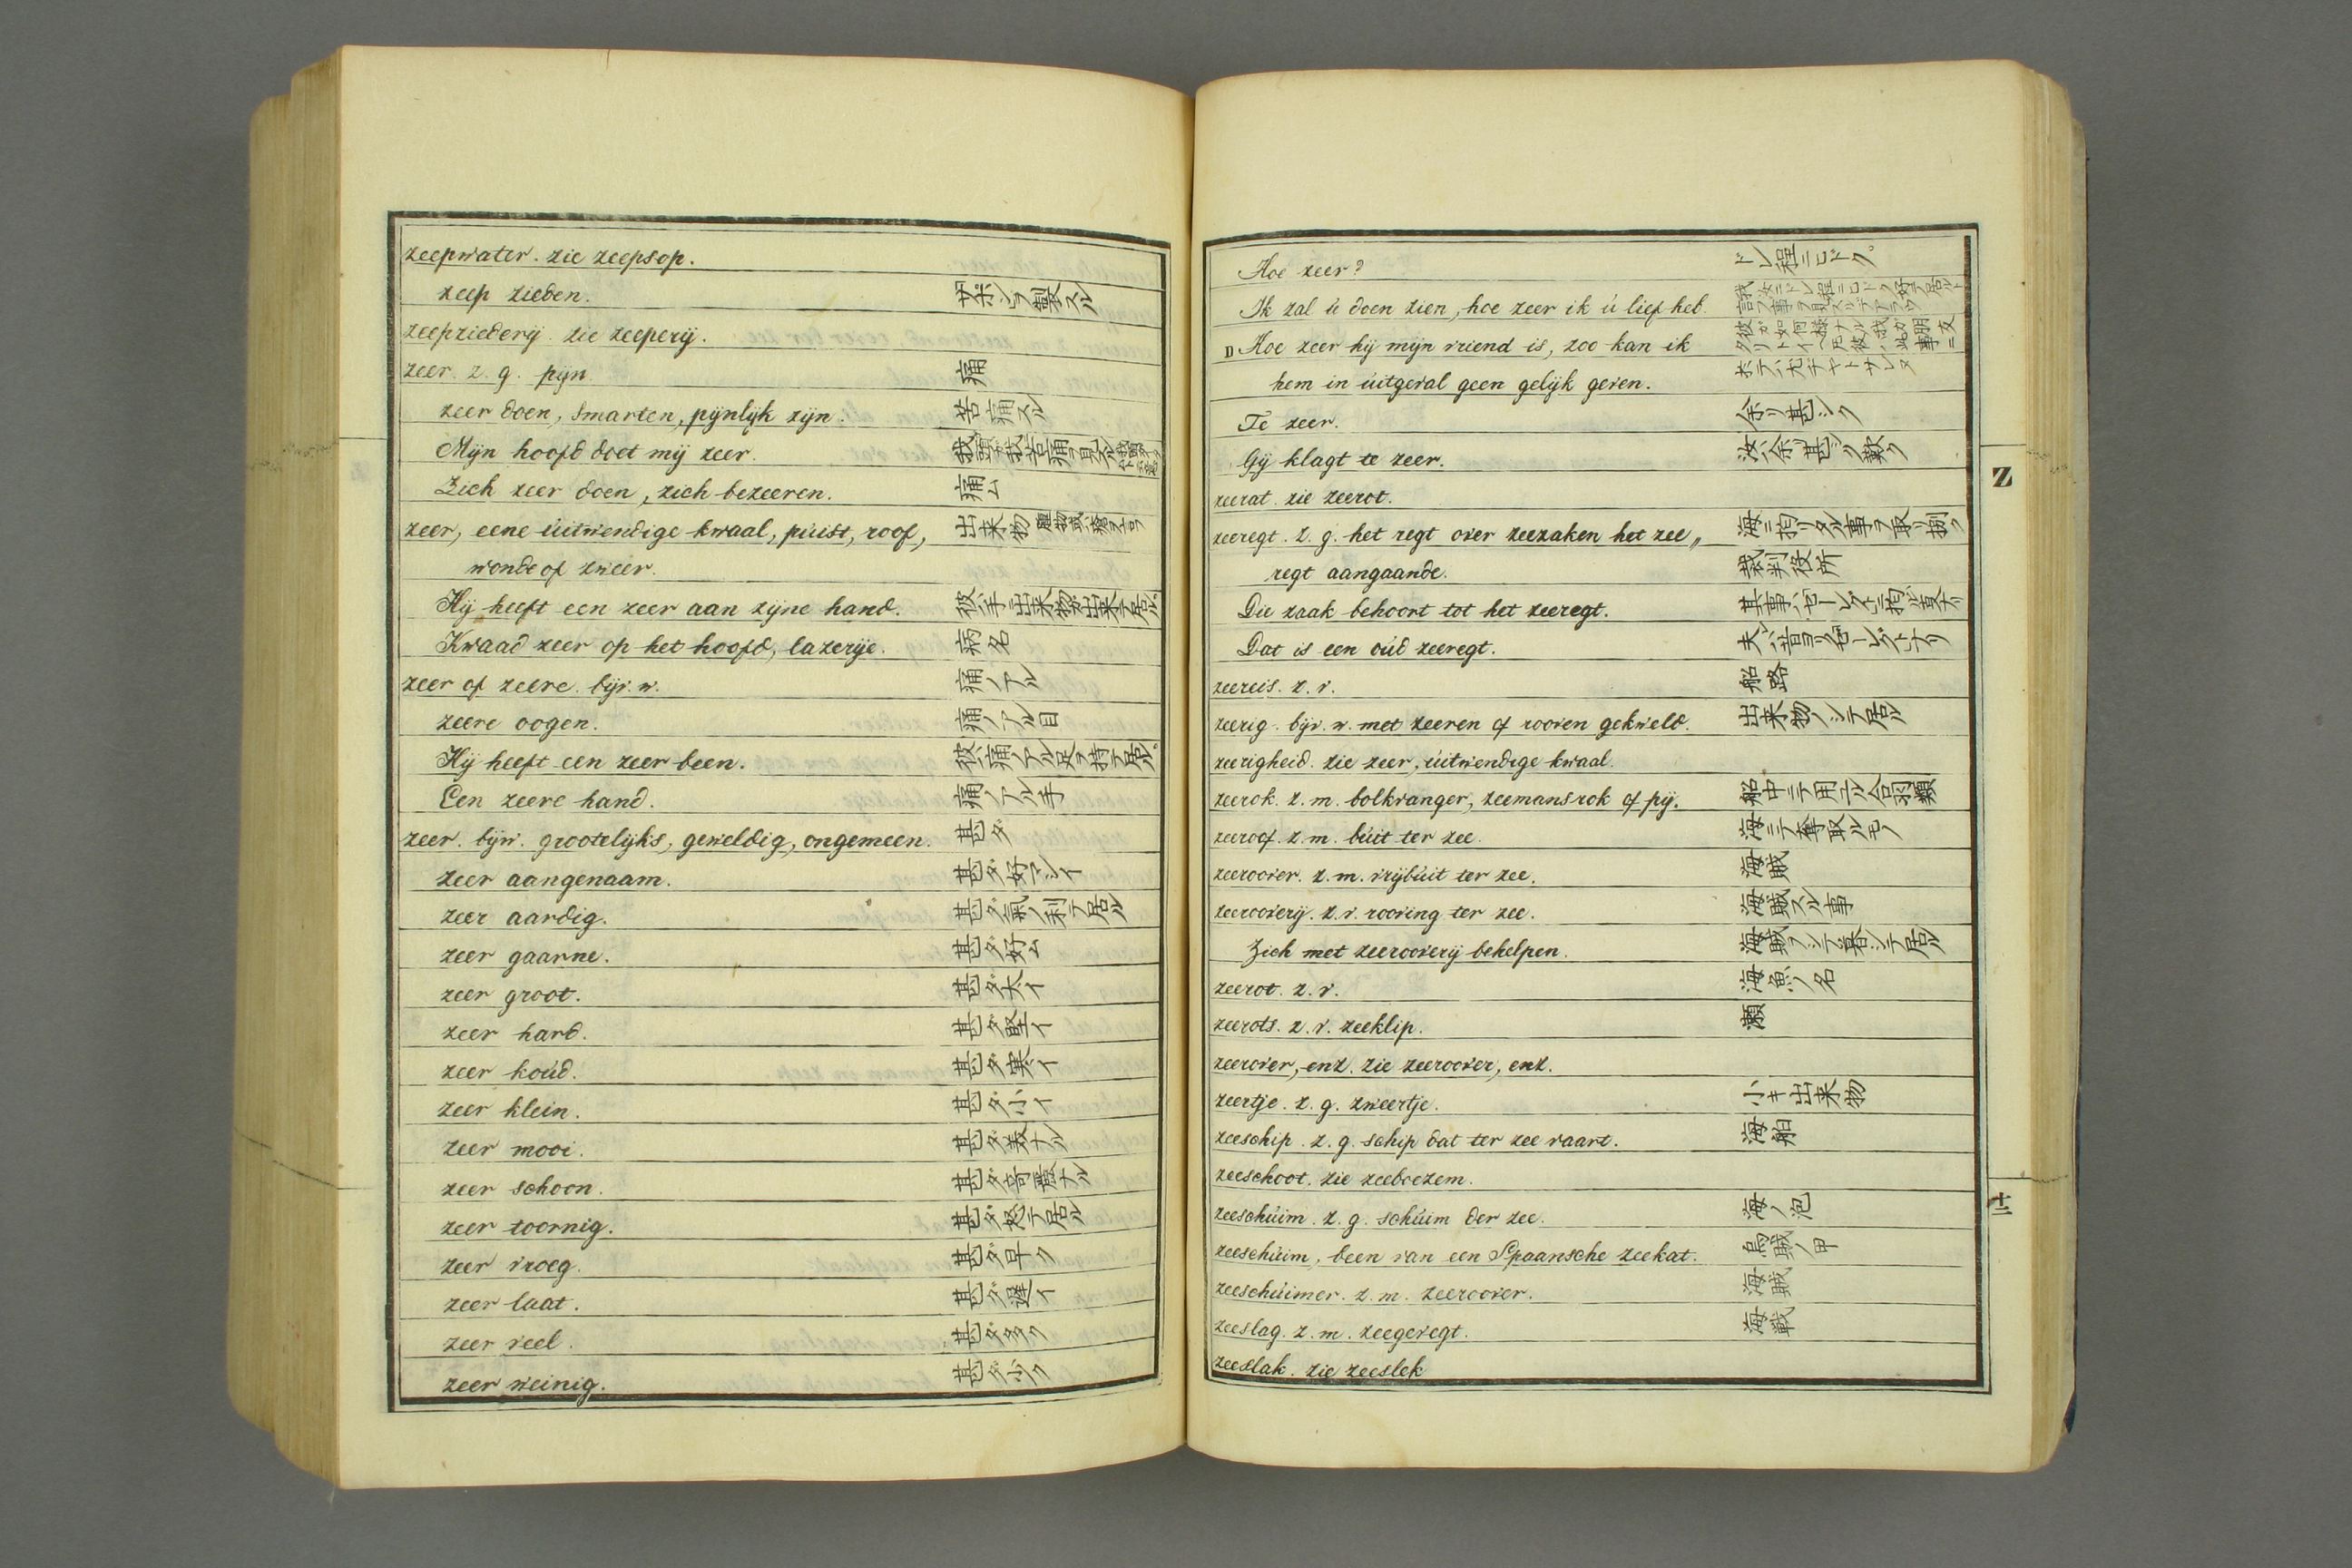 zeepwater. zie zeepsop.
zeep zieden. ザボンヲ製スル
zeepziederij. zie zeeperij.
zeer. z. g. pijn. 痛
zeer doen, smarten, pijnlijk zijn. 苦痛スル
Mijn hoofd doet mij zeer.
Zich zeer doen, zich bezeeren. 痛ム
zeer, eene úitwendige kwaal, púist, roof, 出来物
wonde of zweer.
Hij heeft een zeer aan zijne hand. 彼ハ手ニ出来物ガ出来テ居ル
Kwaad zeer op het hoofd, lazerije. 病名
zeer of zeere. bijv. w. 痛ノアル
zeere oogen. 痛ノアル目
Hij heeft een zeer been. 彼ハ痛ノアル足ヲ持テ居ル。
Een zeere hand. 痛ノアル手
zeer. bijw. grootelijks, geweldig, ongemeen. 甚ダ
zeer aangenaam. 甚ダ好マシイ
zeer aardig. 甚ダ氣ノ利テ居ル
zeer gaarne. 甚ダ好ム
zeer groot. 甚ダ大イ
zeer hard. 甚ダ堅イ
zeer koúd. 甚ダ寒イ
zeer klein. 甚ダ小イ
zeer mooi. 甚ダ美ナル
zeer schoon. 甚ダ奇麗ナル
zeer toornig. 甚ダ怒テ居ル
zeer vroeg. 甚ダ早ク
zeer laat. 甚ダ遅イ
zeer veel. 甚ダ多ク
zeer weinig. 甚ダ少ク
Hoe zeer? ドレ程ニヒドク。
Ik zal ú doen zien, hoe zeer ik ú lief heb.
Hoe zeer hij mijn vriend is, zoo kan ik
hem in úitgeval geen gelijk geven.
Te zeer. 余リ甚シク
Gij klagt te zeer. 汝ハ余リ甚シク歎ク
zeerat. zie zeerot.
zeeregt. z. g. het regt over zeezaken het zee„ 海ニ拘リタル事ヲ取リ捌ク
regt aangaande. 裁判役所
Die zaak behoort tot het zeeregt.
Dat is een oúd zeeregt.
zeereis. z. v. 船路
zeerig. bijv. w. met zeeren of rooven gekweld. 出来物ノシテ居ル
zeerigheid. zie zeer, úitwendige kwaal.
zeerok. z. m. bolkvanger, zeemansrok of pij. 船中ニテ用ユル合羽類
zeeroof. z. m. búit ter zee. 海ニテ奪取ルモノ
zeeroover. z. m. vrijbúit ter zee. 海賊
zeerooverij. z. v. rooving ter zee. 海賊スル事
Zich met zeerooverij behelpen. 海賊ヲシテ暮シテ居ル
zeerot. z. v. 海魚ノ名
zeerots. z. v. zeeklip. 瀬
zeerover, enz. zie zeeroover, enz.
zeertje. z. g. zweertje. 小キ出来物
zeeschip. z. g. schip dat ter zee vaart. 海舶
zeeschoot. zie zeeboezem.
zeeschúim. z. g. schúim der zee. 海ノ泡
zeeschúim, been van een Spaansche zeekat. 烏賊ノ甲
zeeschúimer. z. m. zeeroover. 海賊
zeeslag. z. m. zeegevegt. 海戦
zeeslak. zie zeeslek
Z